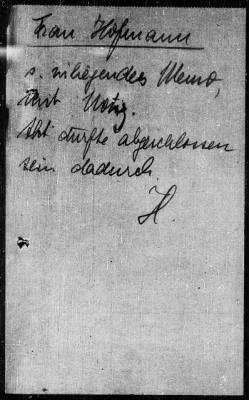 Frau Hofmann
s. inliegendes Memo,
mit Notiz.
dürfte abgeschlossen
sein dadurch.
H.